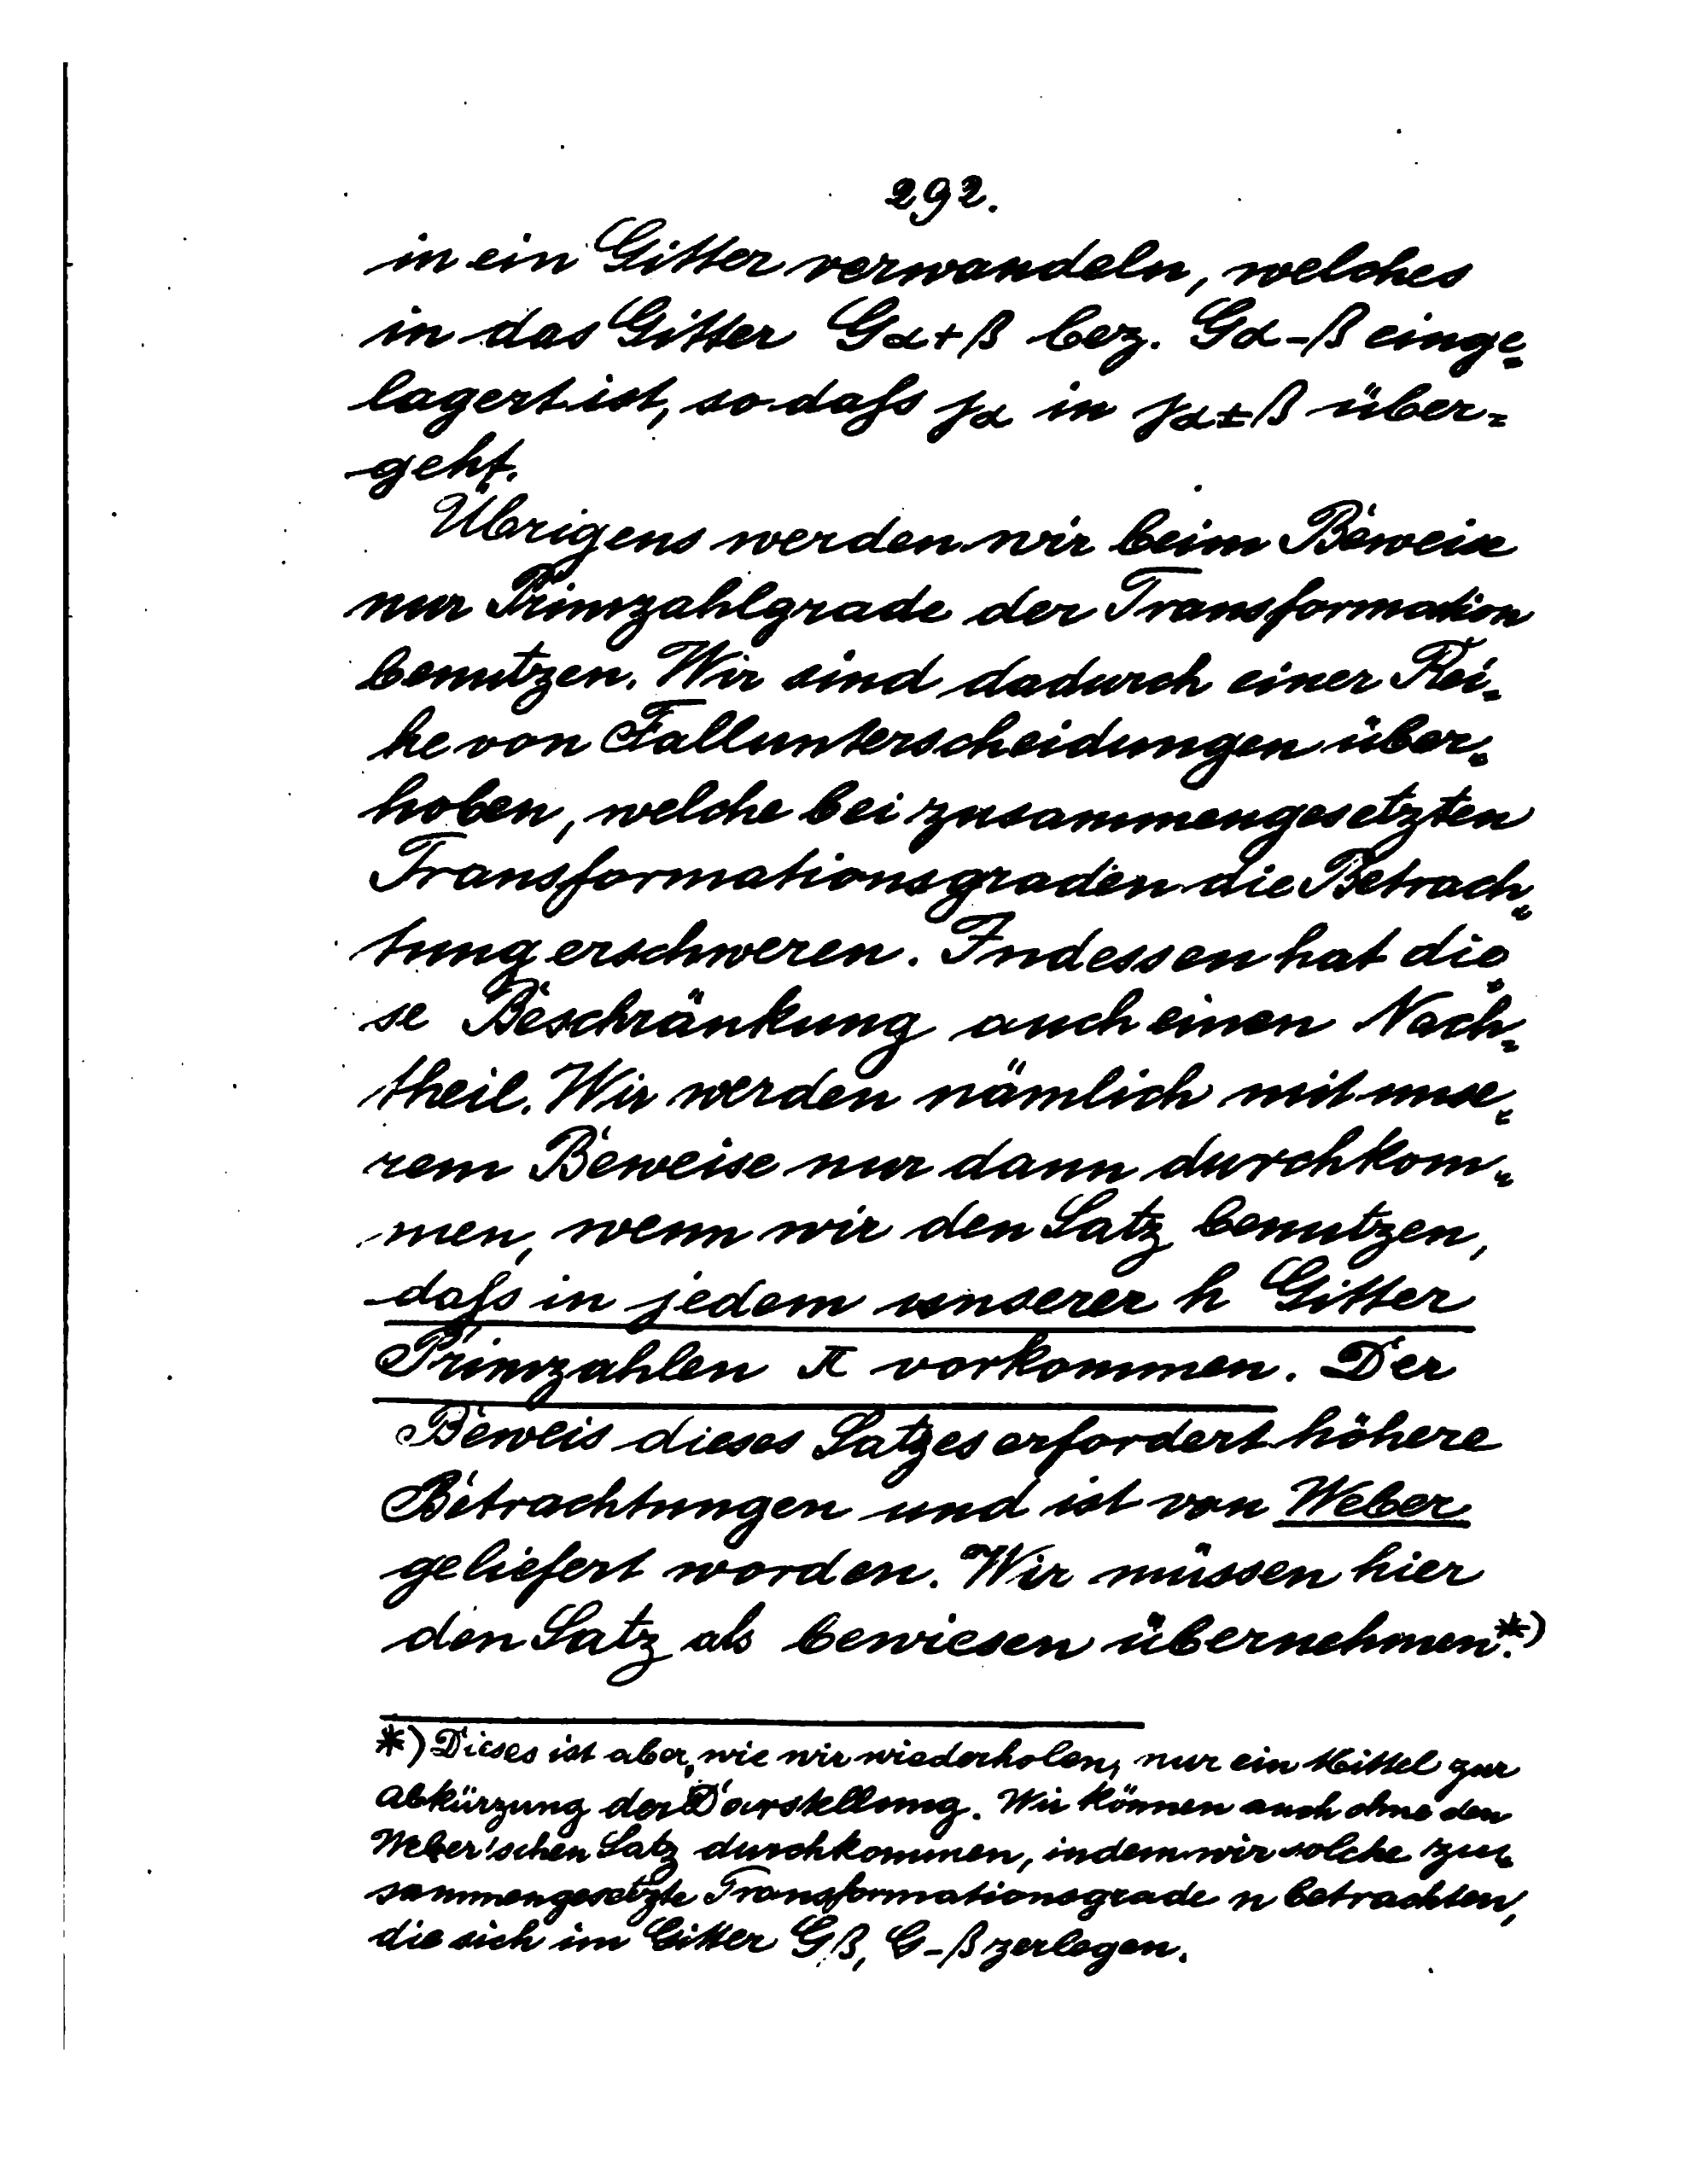 292.
in ein Gitter verwandeln, welches
in das Gitter Gα+β bez. Gα-β einge-
lagert ist, so daſs jα in jα±β über-
geht.
Übrigens werden wir beim Beweise
nur Primzahlgrade der Transformation
benutzen. Wir sind dadurch einer Rei-
he von Fallunterscheidungen über-
hoben, welche bei zusammengesetzten
Transformationsgraden die Betrach-
tung erschweren. Indessen hat die-
se Beschränkung auch einen Nach-
theil. Wir werden nämlich mit unse-
rem Beweise nur dann durchkom-
men, wenn wir den Satz benutzen,
daſs in jedem unserer h Gitter
Primzahlen π vorkommen. Der
Beweis dieses Satzes erfordert höhere
Betrachtungen und ist von Weber
geliefert worden. Wir müssen hier
den Satz als bewiesen übernehmen.*)
*) Dieses ist aber, wie wir wiederholen, nur ein Mittel zur
Abkürzung der Darstellung. Wir können auch ohne den
Weber'schen Satz durchkommen, indem wir solche zu-
sammengesetzte Transformationsgrade n betrachten,
die sich im Gitter Gβ, G-β zerlegen.